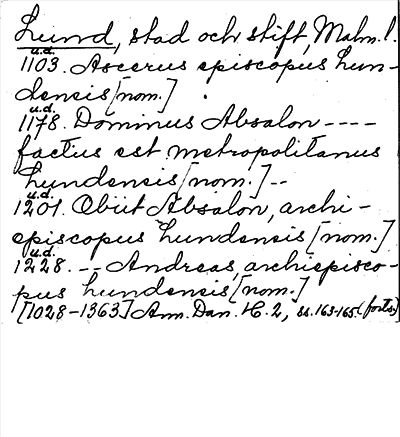 Lund, stad och stift, Malm. l.
u.d.
1103. Ascerus episcopus lun-
densis [nom.]
u.d.
1178. Dominus Absalon ----
factus est metropolitanus
Lundensis [nom.] --
u.d.
1201. Obiit Absalon, archi-
episcopus Lundensis [nom.]
u.d.
1228. -- Andreas, archiepisco-
pus Lundensis [nom.]
[1028-1363] Ann. Dan. H. 2, ss. 163-165. (forts.)